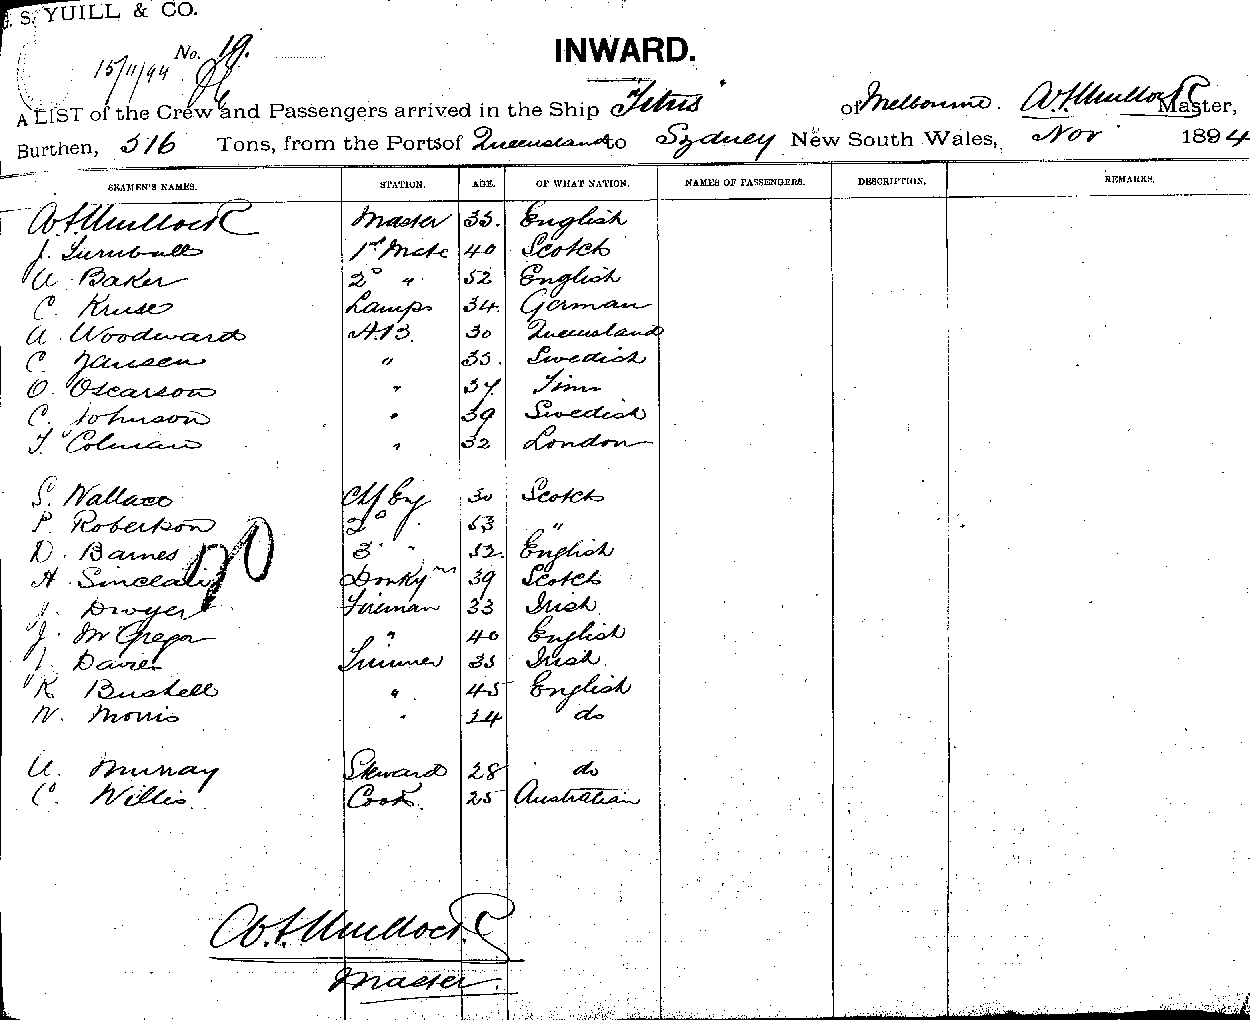 . S. YUILL & CO.
15/11/94 No. 19.
INWARD.
A LIST of the Crew and Passengers arrived in the Ship Titus of Melbourne. W.F. Mullock Master,
Burthen, 516 Tons, from the Ports of Queensland to Sydney New South Wales, Nov 1894
SEAMEN'S NAMES. STATION. AGE. OF WHAT NATION. NAMES OF PASSENGERS. DESCRIPTION. REMARKS.
Mullock Master 35. English
J. Turnbull 1st Mate 40 Scotch
A. Baker 2° " 52 English
C. Kruse Lamps 34. German
A. Woodward A.B. 30 Queensland
C. Jansen " 35. Swedish
O. Oscarson " 37 Finn
C. Johnson " 39 Swedish
T. Colman " 32 London
S. Wallace Chf Eng 30 Scotch
P. Robertson 2° 53 "
D. Barnes 3 " 52. English
A. Sinclair Donkyman 39 Scotch
J. Dwyer Fireman 33 Irish
J. McGregor " 40 English
J. Davies Trimmer 35 Irish.
R. Bushell " 45 English
W. Morris " 24 do
A. Murray Steward 28 do
C. Willis. Cook. 25 Australian
Mullock
Master.